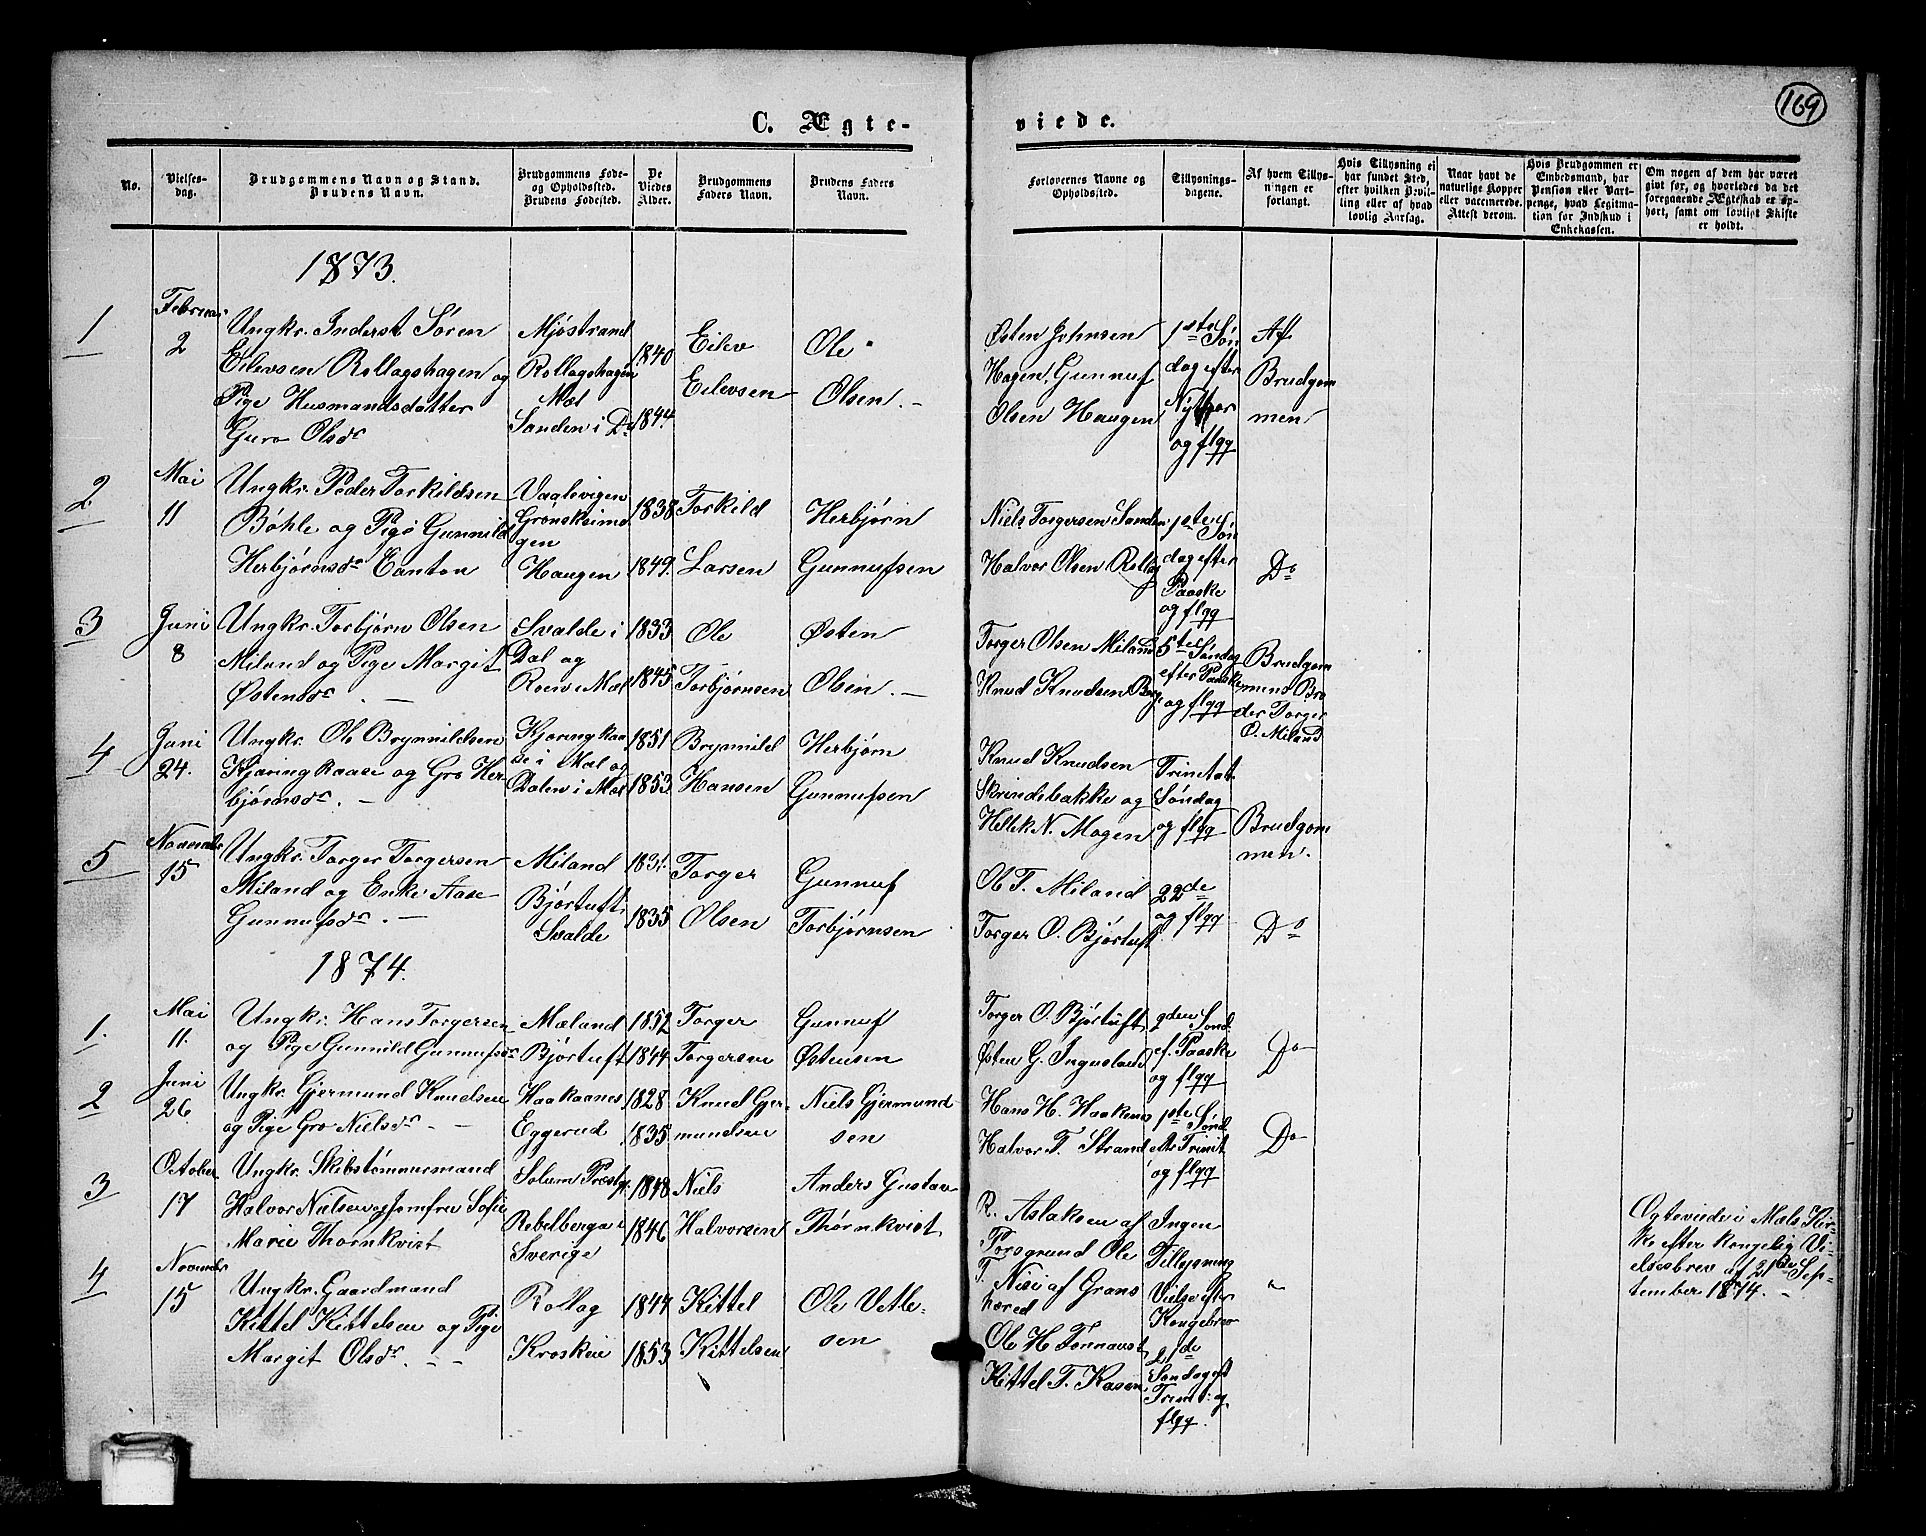 C. Ægte-
viede.
169
No.
Vielses-
dag.
Brudgommens Navn og Stand.
Brudens Navn.
Brudgommens Føde-
og Opholdssted.
Brudens Fødested.
De
Viedes
Alder.
Brudgommens
Faders Navn.
Brudens Faders
Navn.
Forlovernes Navne og
Opholdssted.
Tillysnings-
dagene.
Af hvem Tillys-
ningen er
forlangt.
Hvis Tillysning ei
har fundet Sted,
efter hvilken Bevil-
ling eller af hvad
lovlig Aarsag.
Naar havt de
naturlige Kopper
eller vaccinerede.
Attest derom.
Hvis Brudgommen er
Embedsmand, har
Pension eller Vart-
penge, hvad Legitima-
tion for Indskud i
Enkekassen.
Om nogen af dem har været
gift før, og hvorledes da det
foregaaende Ægteskab er op-
hørt, samt om lovligt Skifte
er holdt.
1873.
1
Februar
2
Ungkr. Inderst Søren
Eilevsen Rollagshagen og
Pige Husmandsdatter
Guro Olsdr
Mjøstrand
Rollagshagen
Mæl
Sanden i Do
1840
1844
Eilev
Eilevsen
Ole
Olsen. —
Østen Johnsen
Hagen, Gunnuf
Olsen Haugen
1ste Søn
dag efter
Nytaar
og flgg
Af
Brudgom
men
2
Mai
11
Ungkr. Peder Torkildsen
Bøhle og Pige Gunnild
Herbjørnsdr Canton
Vaalevigen
gen
Haugen
1838
1849.
Torkild
Larsen
Herbjørn
Gunnufsen
Niels Torgersen Sanden
Halvor Olsen Rollag
1ste Søn
dag efter
Paaske
og flgg
Do
3
Juni
8
Ungkr. Torbjørn Olsen
Miland og Pige Margit
Østensdr. —
Svalde i
Dal og
Roen i Mæl
1833
1845
Ole
Torbjørnsen
Østen
Olsen. —
Torger Olsen Miland
Knud Knudsen Berge
5te Søndag
efter Paaske
og flgg
Brudgom
mens Bro
der Torger
O. Miland
4
Juni
24.
Ungkr. Ole Brynnildsen
Kjæringkaase og Gro Her
bjørnsdr. —
Kjæringkaa
se i Mæl og
Dalen i Mæl
1851
1853
Brynnild
Hansen
Herbjørn
Gunnufsen
Knud Knudsen
Skrindebakke og
Hellek N. Mogen
Trinitat
Søndag
og flgg
Brudgom
men.
5
November
15
Ungkr. Torger Torgersen
Miland og Enke Aase
Gunnufsdr. —
Miland
Bjørtuft
Svalde
1831.
1835
Torger
Olsen
Gunnuf
Torbjørnsen
Ol T. Miland
Torger O. Bjørtuft
22de
og flgg
Do
1874.
1.
Mai
11.
Ungkr. Hans Torgersen
og Pige Gunnild Gunnufsdr
Mæland
Bjørtuft
1852
1844
Torger
Torgersen
Gunnuf
Østensen
Torger O. Bjørtuft
Østen G. Ingulsland
2den Sønd.
e. Paaske
og flgg
Do
2
Juni
26.
Ungkr. Gjermund Knudsen
og Pige Gro Nielsdr. —
Haakaanes
Eggerud
1828
1835
Knud Gjer-
mundsen
Niels Gjermund
sen
Hans H. Haakenes
Halvor T. Strand
1ste Sønd.
eft. Trinit
og flgg
Do
3
October
17
Ungkr. Skibstømmermand
Halvor Nielsen og Jomfru Sofie
Marie Thørnkvist
Solum Præstgj.
Rebelberga i
Sverige
1848
1846
Niels
Halvorsen
Anders Gustav
Thørnkvist
R. Aslaksen af
Porsgrund Ole
T. Nisi af Grans
hered
Ingen
Tillysning
Vielse efter
Kongebrev
"
Egteviede i Mæls Kir-
ke efter kongelig Vi-
elsesbrev af 21de Sep-
tember 1874. —
4
November
15
Ungkr. Gaardmand
Kittel Kittelsen og Pige
Margit Olsdr. — —
Rollag
Kroskeie
1844
1853
Kittel
Kittelsen
Ole Vetle-
sen
Ole H. Tørnaust
Kittel T. Kasen
21de
Søndag eft
Trinit: og
flgg.